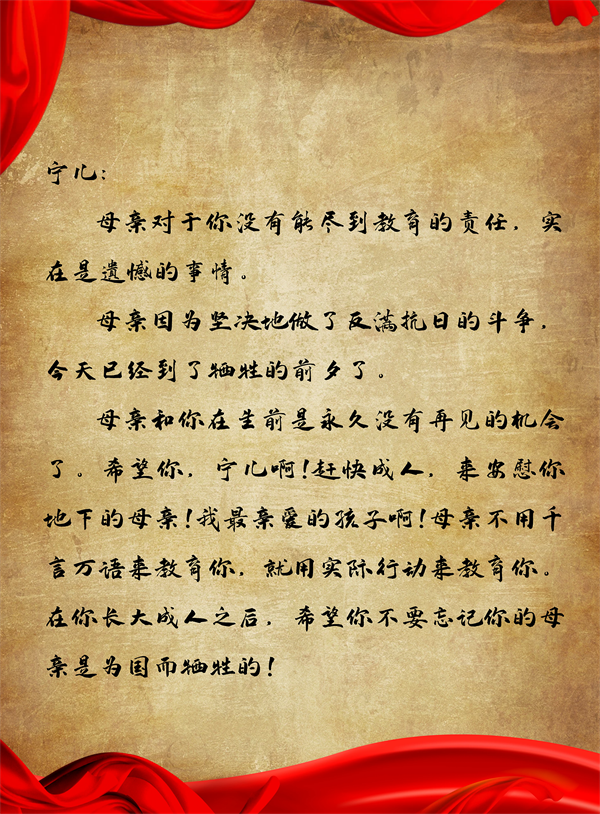 宁儿：
母亲对于你没有能尽到教育的责任，实
在是遗憾的事情。
母亲因为坚决地做了反满抗日的斗争，
今天已经到了牺牲的前夕了。
母亲和你在生前是永久没有再见的机会
了。希望你，宁儿啊！赶快成人，来安慰你
地下的母亲！我最亲爱的孩子啊！母亲不用千
言万语来教育你，就用实际行动来教育你。
在你长大成人之后，希望你不要忘记你的母
亲是为国而牺牲的！